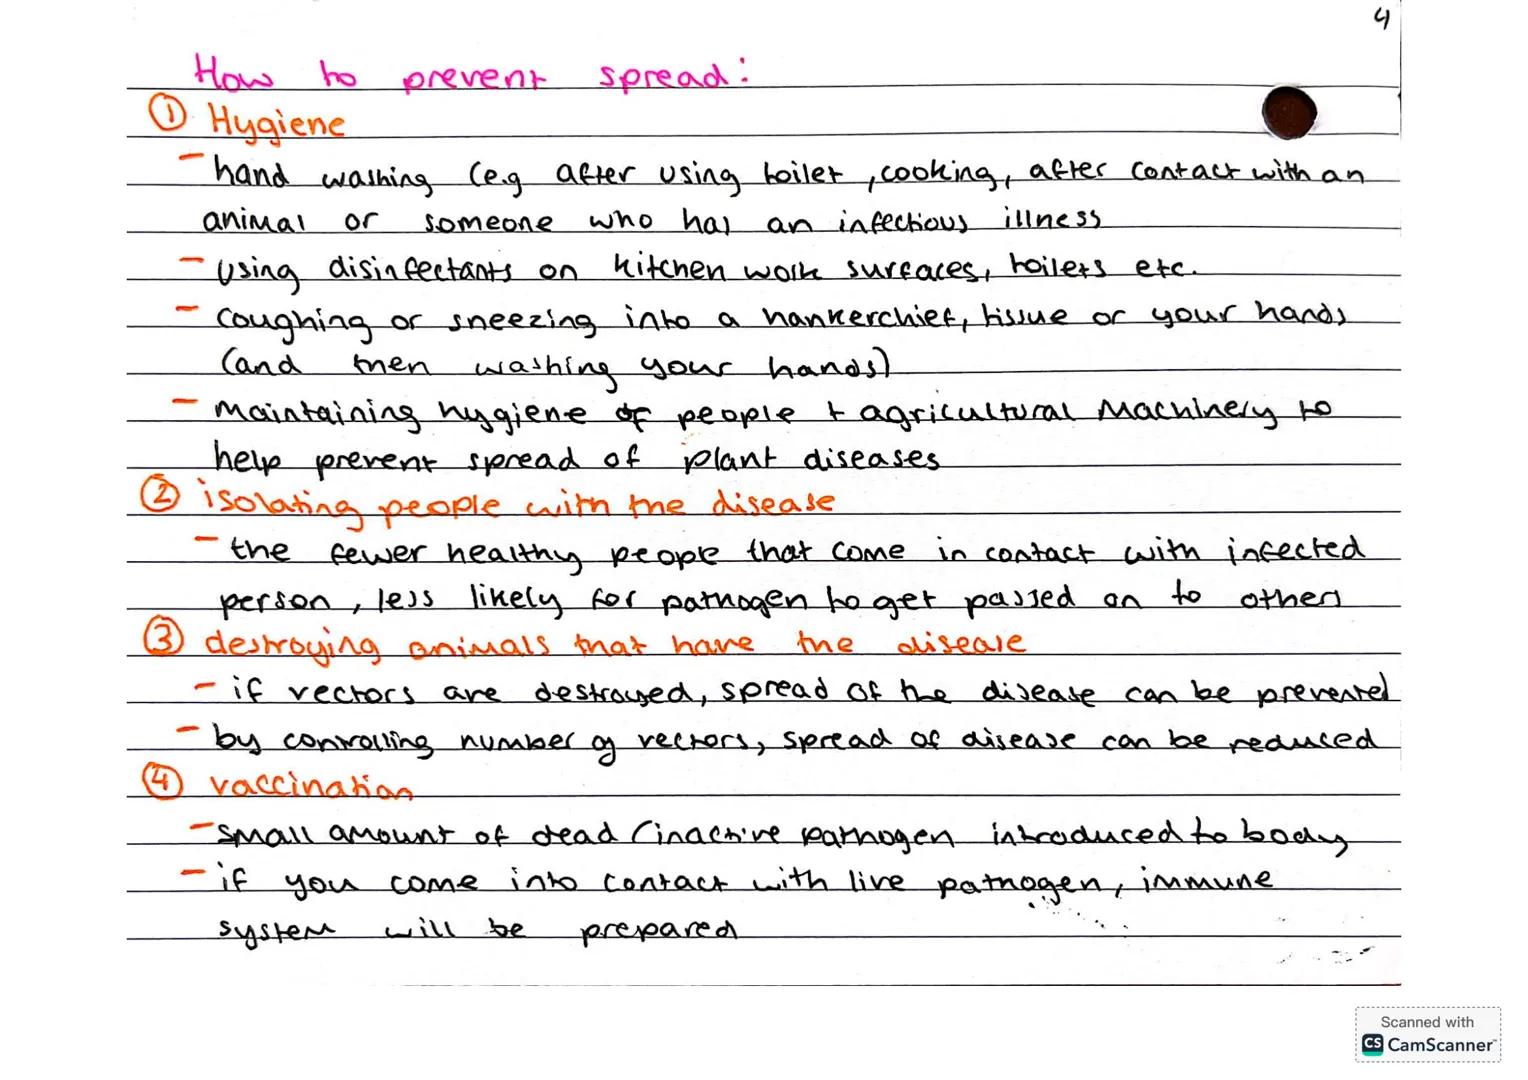 4
How to prevent spread:
① Hygiene
- hand washing (e.g after using toilet, cooking, after contact with an
animal or someone who has an infectious illness
- using disinfectants on kitchen work surfaces, toilets etc.
- coughing or sneezing into a hankerchief, tissue or your hands
(and then washing your hands)
- maintaining hygiene of people + agricultural machinery to
help prevent spread of plant diseases
② isolating people with the disease
- the fewer healthy people that come in contact with infected
person, less likely for pathogen to get passed on to others
③ destroying animals that have the disease
- if vectors are destroyed, spread of the disease can be prevented
- by controlling number of vectors, spread of disease can be reduced
④ vaccination
- small amount of dead/inactive pathogen introduced to body
- if you come into contact with live pathogen, immune
system will be prepared
Scanned with
CS CamScanner